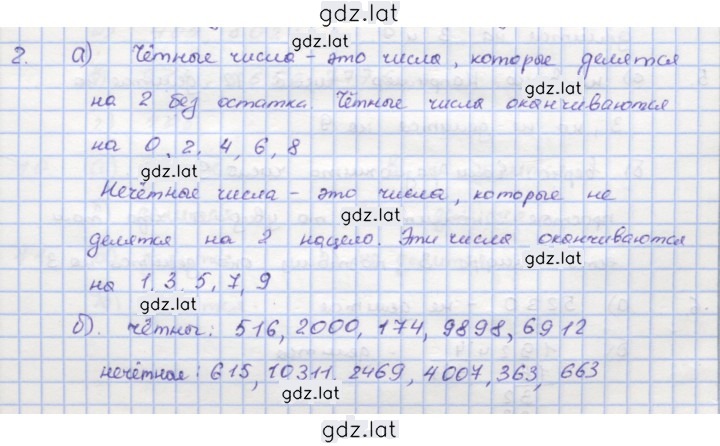 gdz.lat
gdz.lat
2. а) Чётные числа – это числа, которые делятся
на 2 без остатка. Чётные числа оканчиваются
на 0, 2, 4, 6, 8
gdz.lat
Нечётные числа – это числа, которые не
gdz.lat
делятся на 2 нацело. Эти числа оканчиваются
gdz.lat
на 1, 3. 5, 7, 9
gdz.lat
б). чётные: 516, 2000, 174, 9898, 6912
нечётная: 615, 10311. 2469, 4007, 363, 663
gdz.lat
gdz.lat